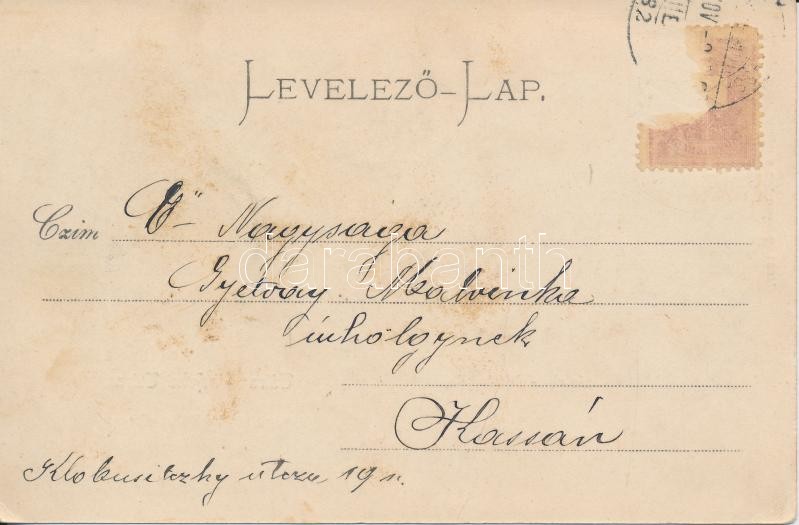 LEVELEZŐ-LAP.
Czim Ő Nagysága
Gyélvay Malvinka
úrhölgynek
Kassán
Klobusitzky utcza 19 sz.
darabanth